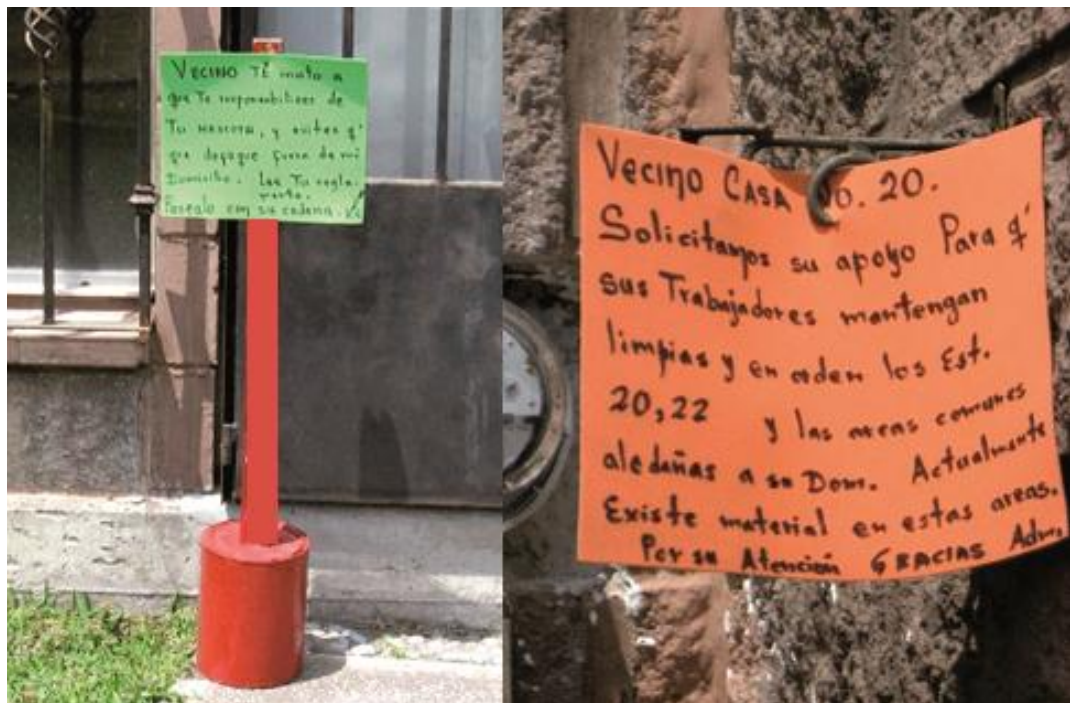 VECINO TÉ invito a
que Te responsabilices de
Tu MASCOTA, y evites q'
que defeque fuera de mi
Domicilio. Lee Tu regla-
mento.
Pasealo con su cadena.
Vecino CASA No. 20.
Solicitamos su apoyo Para q'
sus Trabajadores mantengan
limpias y en orden los Est.
20,22 y las areas comunes
aledañas a su Dom. Actualmente
Existe material en estas areas.
Por su Atención GRACIAS Adm.